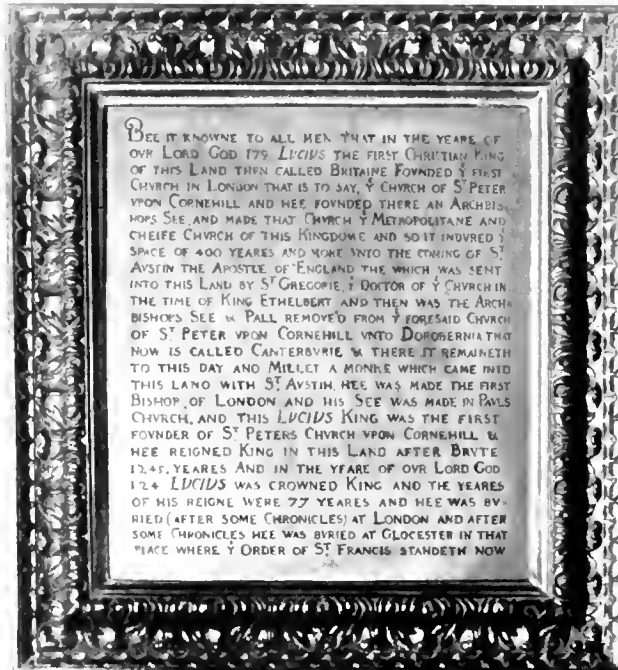 BEE IT KNOWNE TO ALL MEN THAT IN THE YEARE OF
OVR LORD GOD 179 LUCIUS THE FIRST CHRISTIAN KING
OF THIS LAND THEN CALLED BRITAINE FOVNDED Ẏ FIRST
CHVRCH IN LONDON THAT IS TO SAY, Ẏ CHVRCH OF Sᵀ PETER
VPON CORNEHILL AND HEE FOVNDED THERE AN ARCHBIS-
HOPS SEE, AND MADE THAT CHVRCH Ẏ METROPOLITANE AND
CHEIFE CHVRCH OF THIS KINGDOME AND SO IT INDVRED Ẏ
SPACE OF 400 YEARES AND MORE VNTO THE COMING OF Sᵀ
AVSTIN THE APOSTLE OF ENGLAND THE WHICH WAS SENT
INTO THIS LAND BY Sᵀ GREGORIE, Ẏ DOCTOR OF Ẏ CHVRCH IN
THE TIME OF KING ETHELBERT AND THEN WAS THE ARCH-
BISHOPS SEE & PALL REMOVE'D FROM Ẏ FORESAID CHVRCH
OF Sᵀ PETER VPON CORNEHILL VNTO DOROBERNIA THAT
NOW IS CALLED CANTERBVRIE & THERE IT REMAINETH
TO THIS DAY AND MILLET A MONKE WHICH CAME INTO
THIS LAND WITH Sᵀ AVSTIN, HEE WAS MADE THE FIRST
BISHOP OF LONDON AND HIS SEE WAS MADE IN PAVLS
CHVRCH, AND THIS LUCIUS KING WAS THE FIRST
FOVNDER OF Sᵀ PETERS CHVRCH VPON CORNEHILL &
HEE REIGNED KING IN THIS LAND AFTER BRVTE
1245. YEARES AND IN THE YEARE OF OVR LORD GOD
124 LUCIUS WAS CROWNED KING AND THE YEARES
OF HIS REIGNE WERE 77 YEARES AND HEE WAS BV-
RIED (AFTER SOME CHRONICLES) AT LONDON AND AFTER
SOME CHRONICLES HEE WAS BVRIED AT GLOCESTER IN THAT
PLACE WHERE Ẏ ORDER OF Sᵀ FRANCIS STANDETH NOW